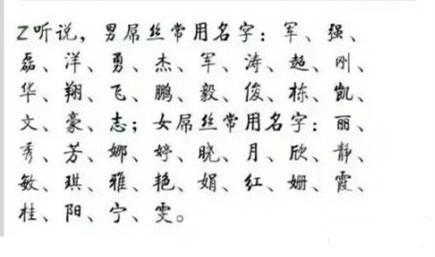 Z听说，男屌丝常用名字：军、强、
磊、洋、勇、杰、军、涛、超、刚、
华、翔、飞、鹏、毅、俊、栋、凯、
文、豪、志；女屌丝常用名字：丽、
秀、芳、娜、婷、晓、月、欣、静、
敏、琪、雅、艳、娟、红、姗、霞、
桂、阳、宁、雯。